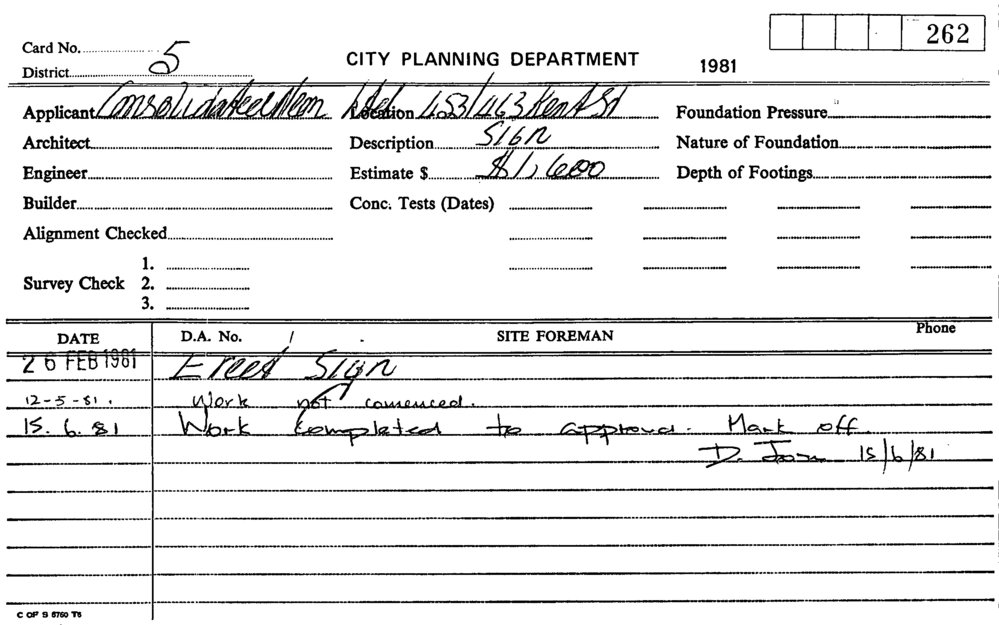 262
Card No. 5
CITY PLANNING DEPARTMENT 1981
District
Applicant Consolidated Neon Ltd Location 453/463 Kent St Foundation Pressure
Architect Description Sign Nature of Foundation
Engineer Estimate $ $1,600 Depth of Footings
Builder Conc. Tests (Dates)
Alignment Checked
1.
Survey Check 2.
3.
DATE D.A. No. SITE FOREMAN Phone
26 FEB 1981 Erect Sign
12-5-81. Work not comenced.
15.6.81 Work completed to approval. Mark off.
D. 15/6/81
C OF S 5760 T6